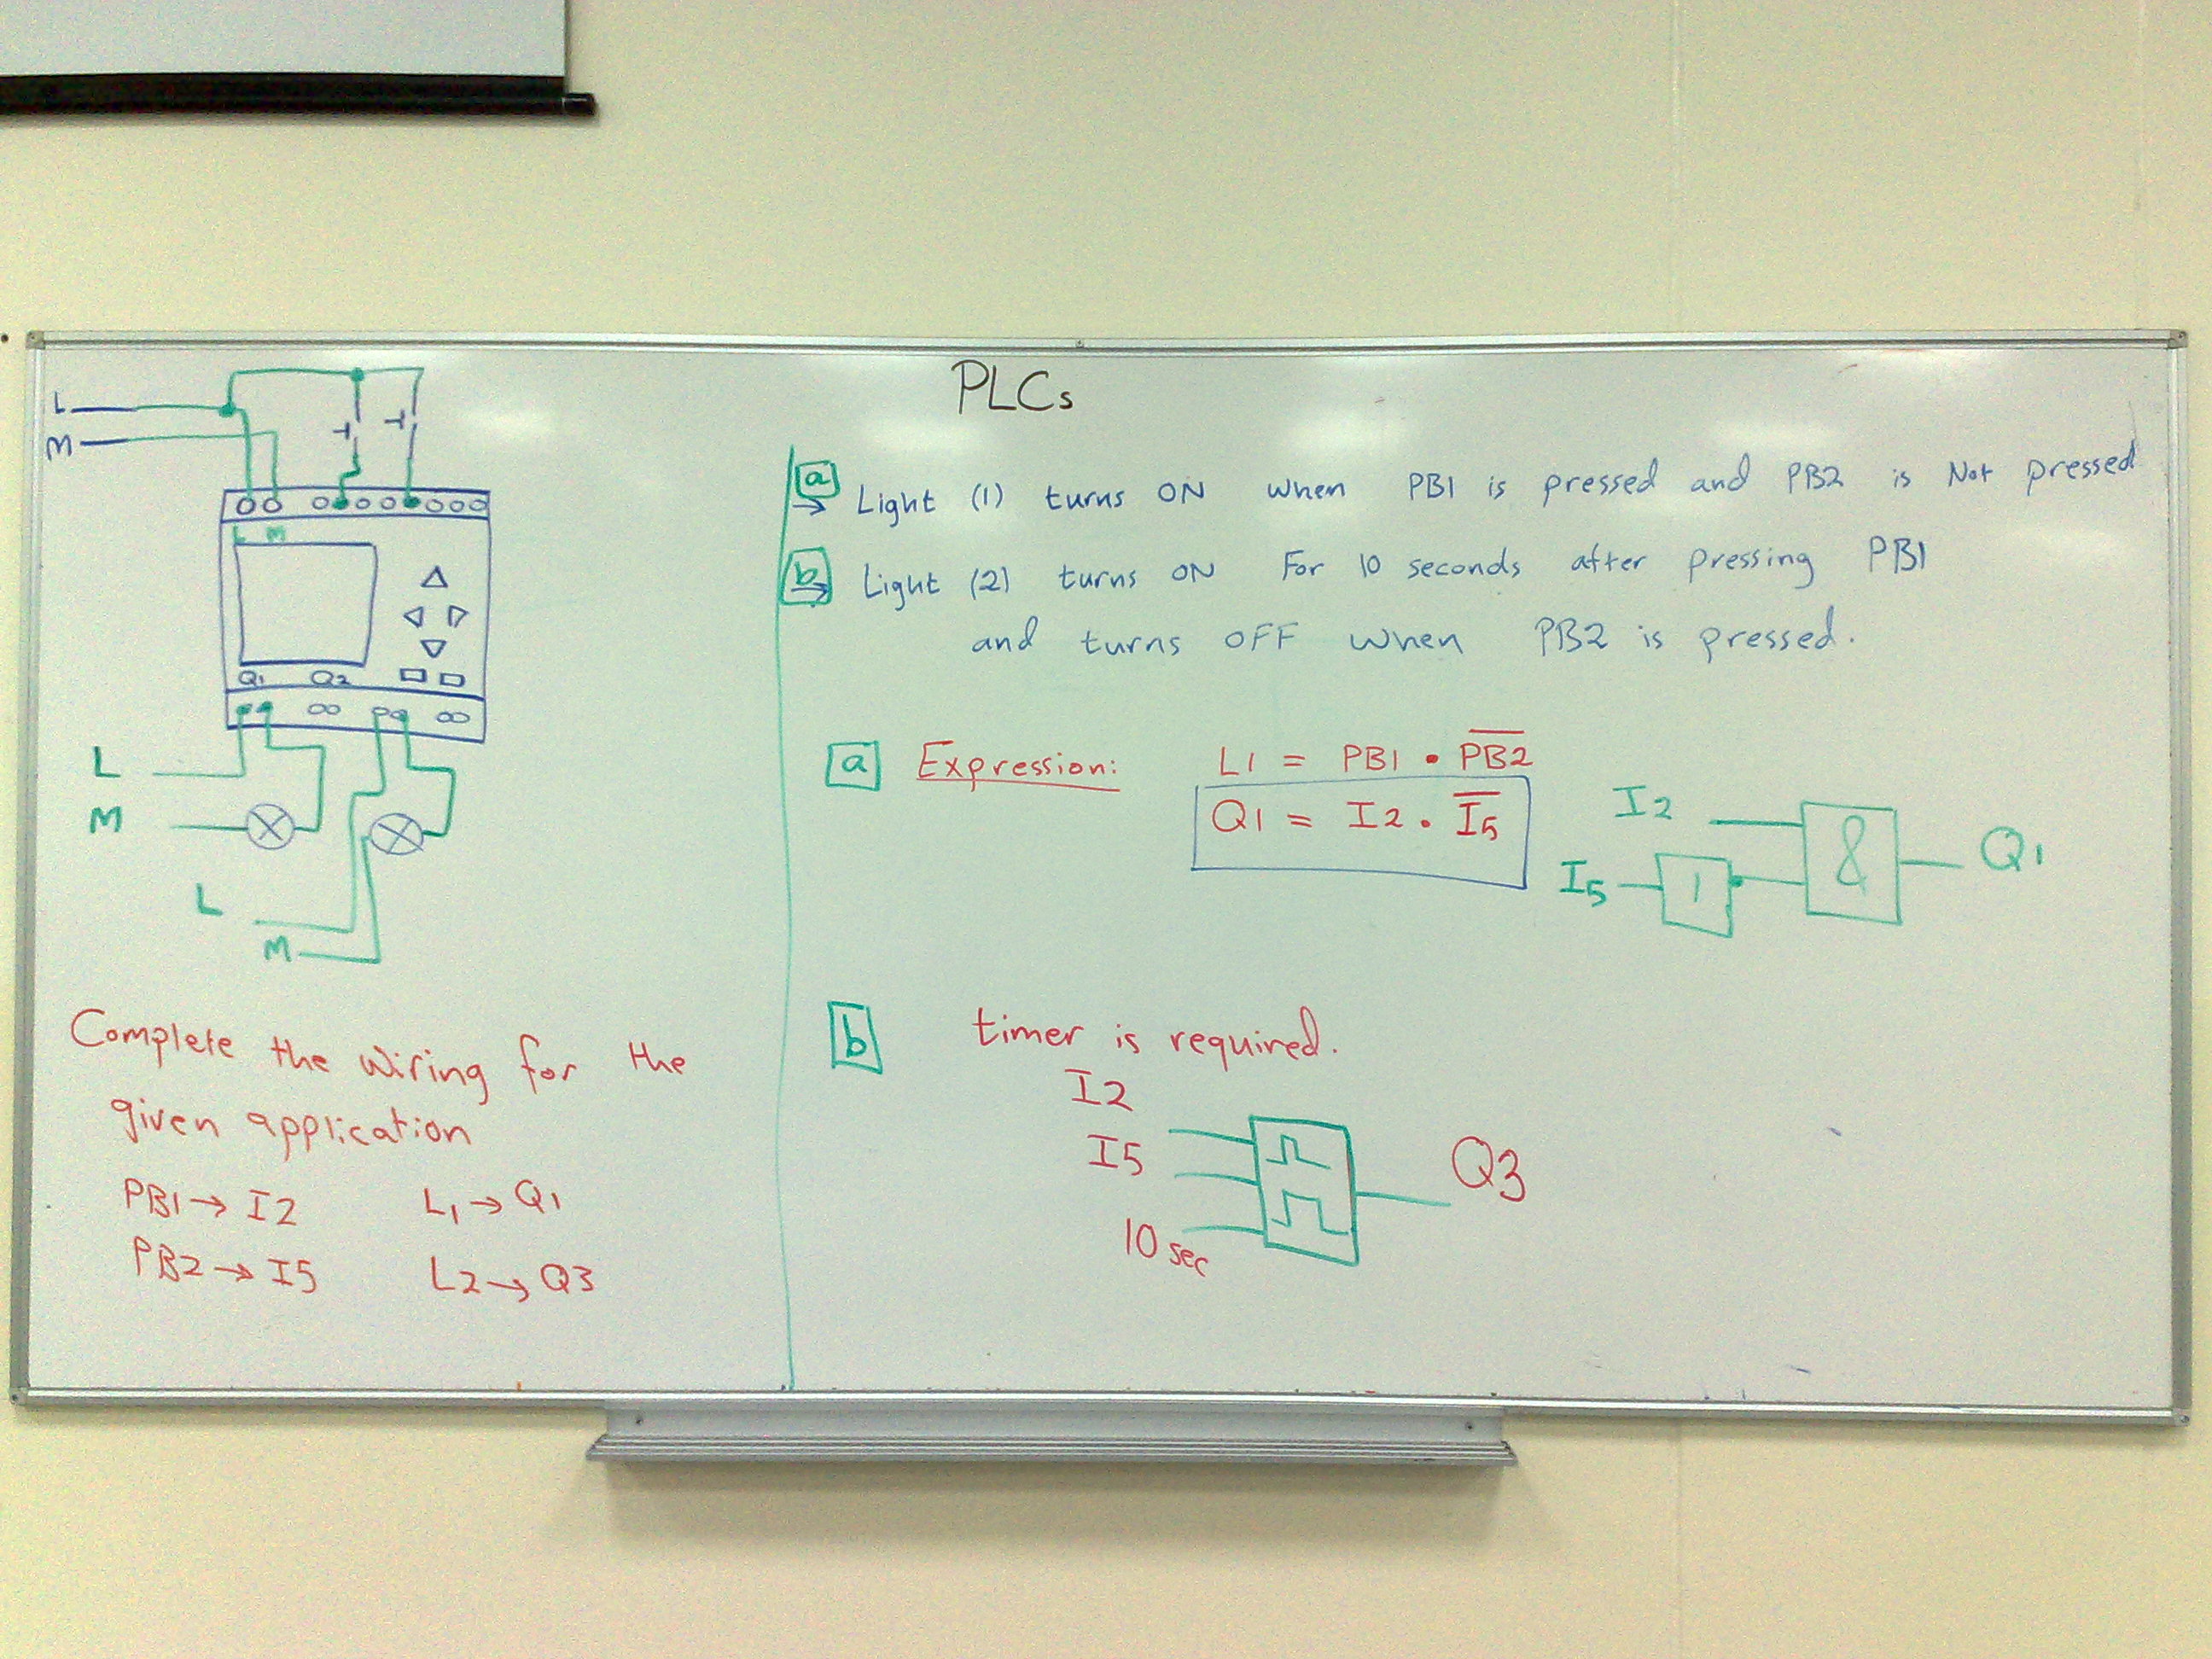 PLCs
L
M
L M
Q1 Q2
L
M
L
M
Complete the wiring for the
given application
PB1 → I2 L1 → Q1
PB2 → I5 L2 → Q3
a Light (1) turns ON when PB1 is pressed and PB2 is Not pressed
b Light (2) turns ON For 10 seconds after pressing PB1
and turns OFF when PB2 is pressed.
a Expression: L1 = PB1 • P̅B̅2̅
Q1 = I2 . I̅5̅
I2
I5 1 & Q1
b timer is required.
I2
I5
Q3
10 sec